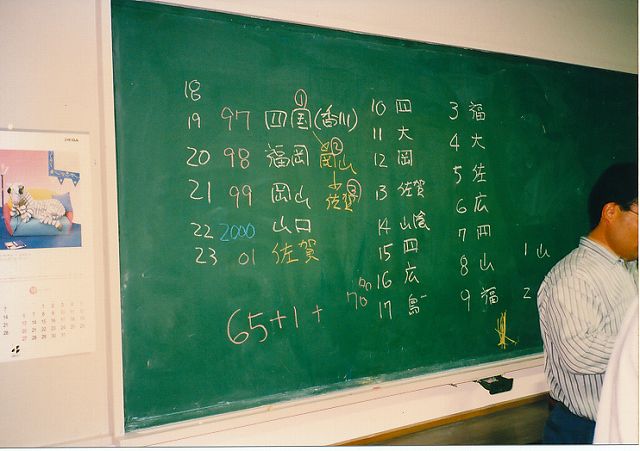 18
19 97 四国(香川) ①
20 98 福岡 岡山 ②
21 99 岡山 佐賀 ③
22 2000 山口
23 01 佐賀
65+1+
10 四
11 大
12 岡
13 佐賀
14 山陰
15 四
16 広
17 島
3 福
4 大
5 佐
6 広
7 四
8 山
9 福
1 山
2